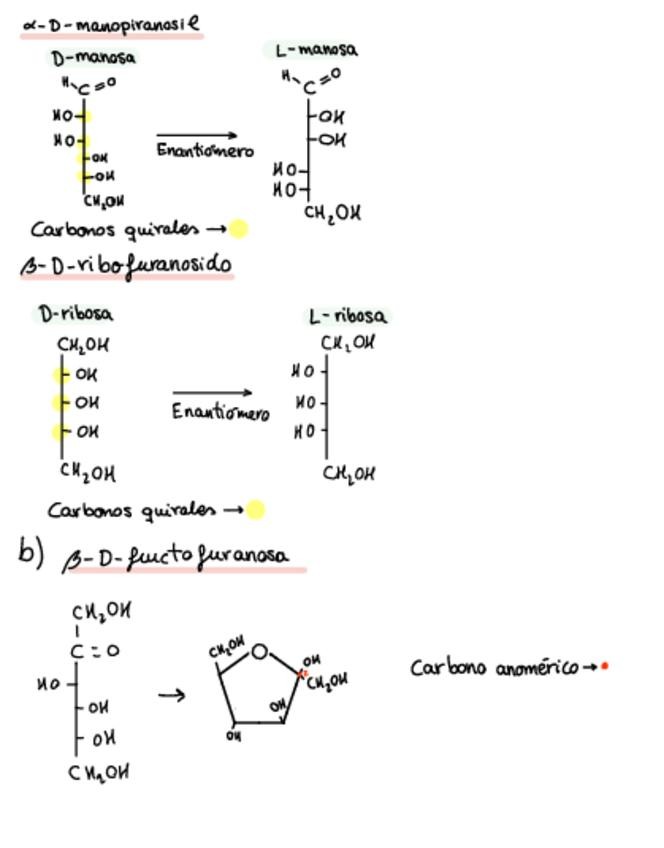 α-D-manopiranosil
D-manosa
L-manosa
H C=O
H C=O
HO
OH
HO
OH
OH
HO
OH
HO
CH₂OH
CH₂OH
Enantiómero
Carbonos quirales →
β-D-ribofuranosido
D-ribosa
L-ribosa
CH₂OH
CH₂OH
OH
HO
OH
HO
OH
HO
Enantiómero
CH₂OH
CH₂OH
Carbonos quirales →
b) β-D-fructofuranosa
CH₂OH
C=O
HO
OH
OH
CH₂OH
→
CH₂OH
O
OH
CH₂OH
OH
OH
Carbono anomérico →